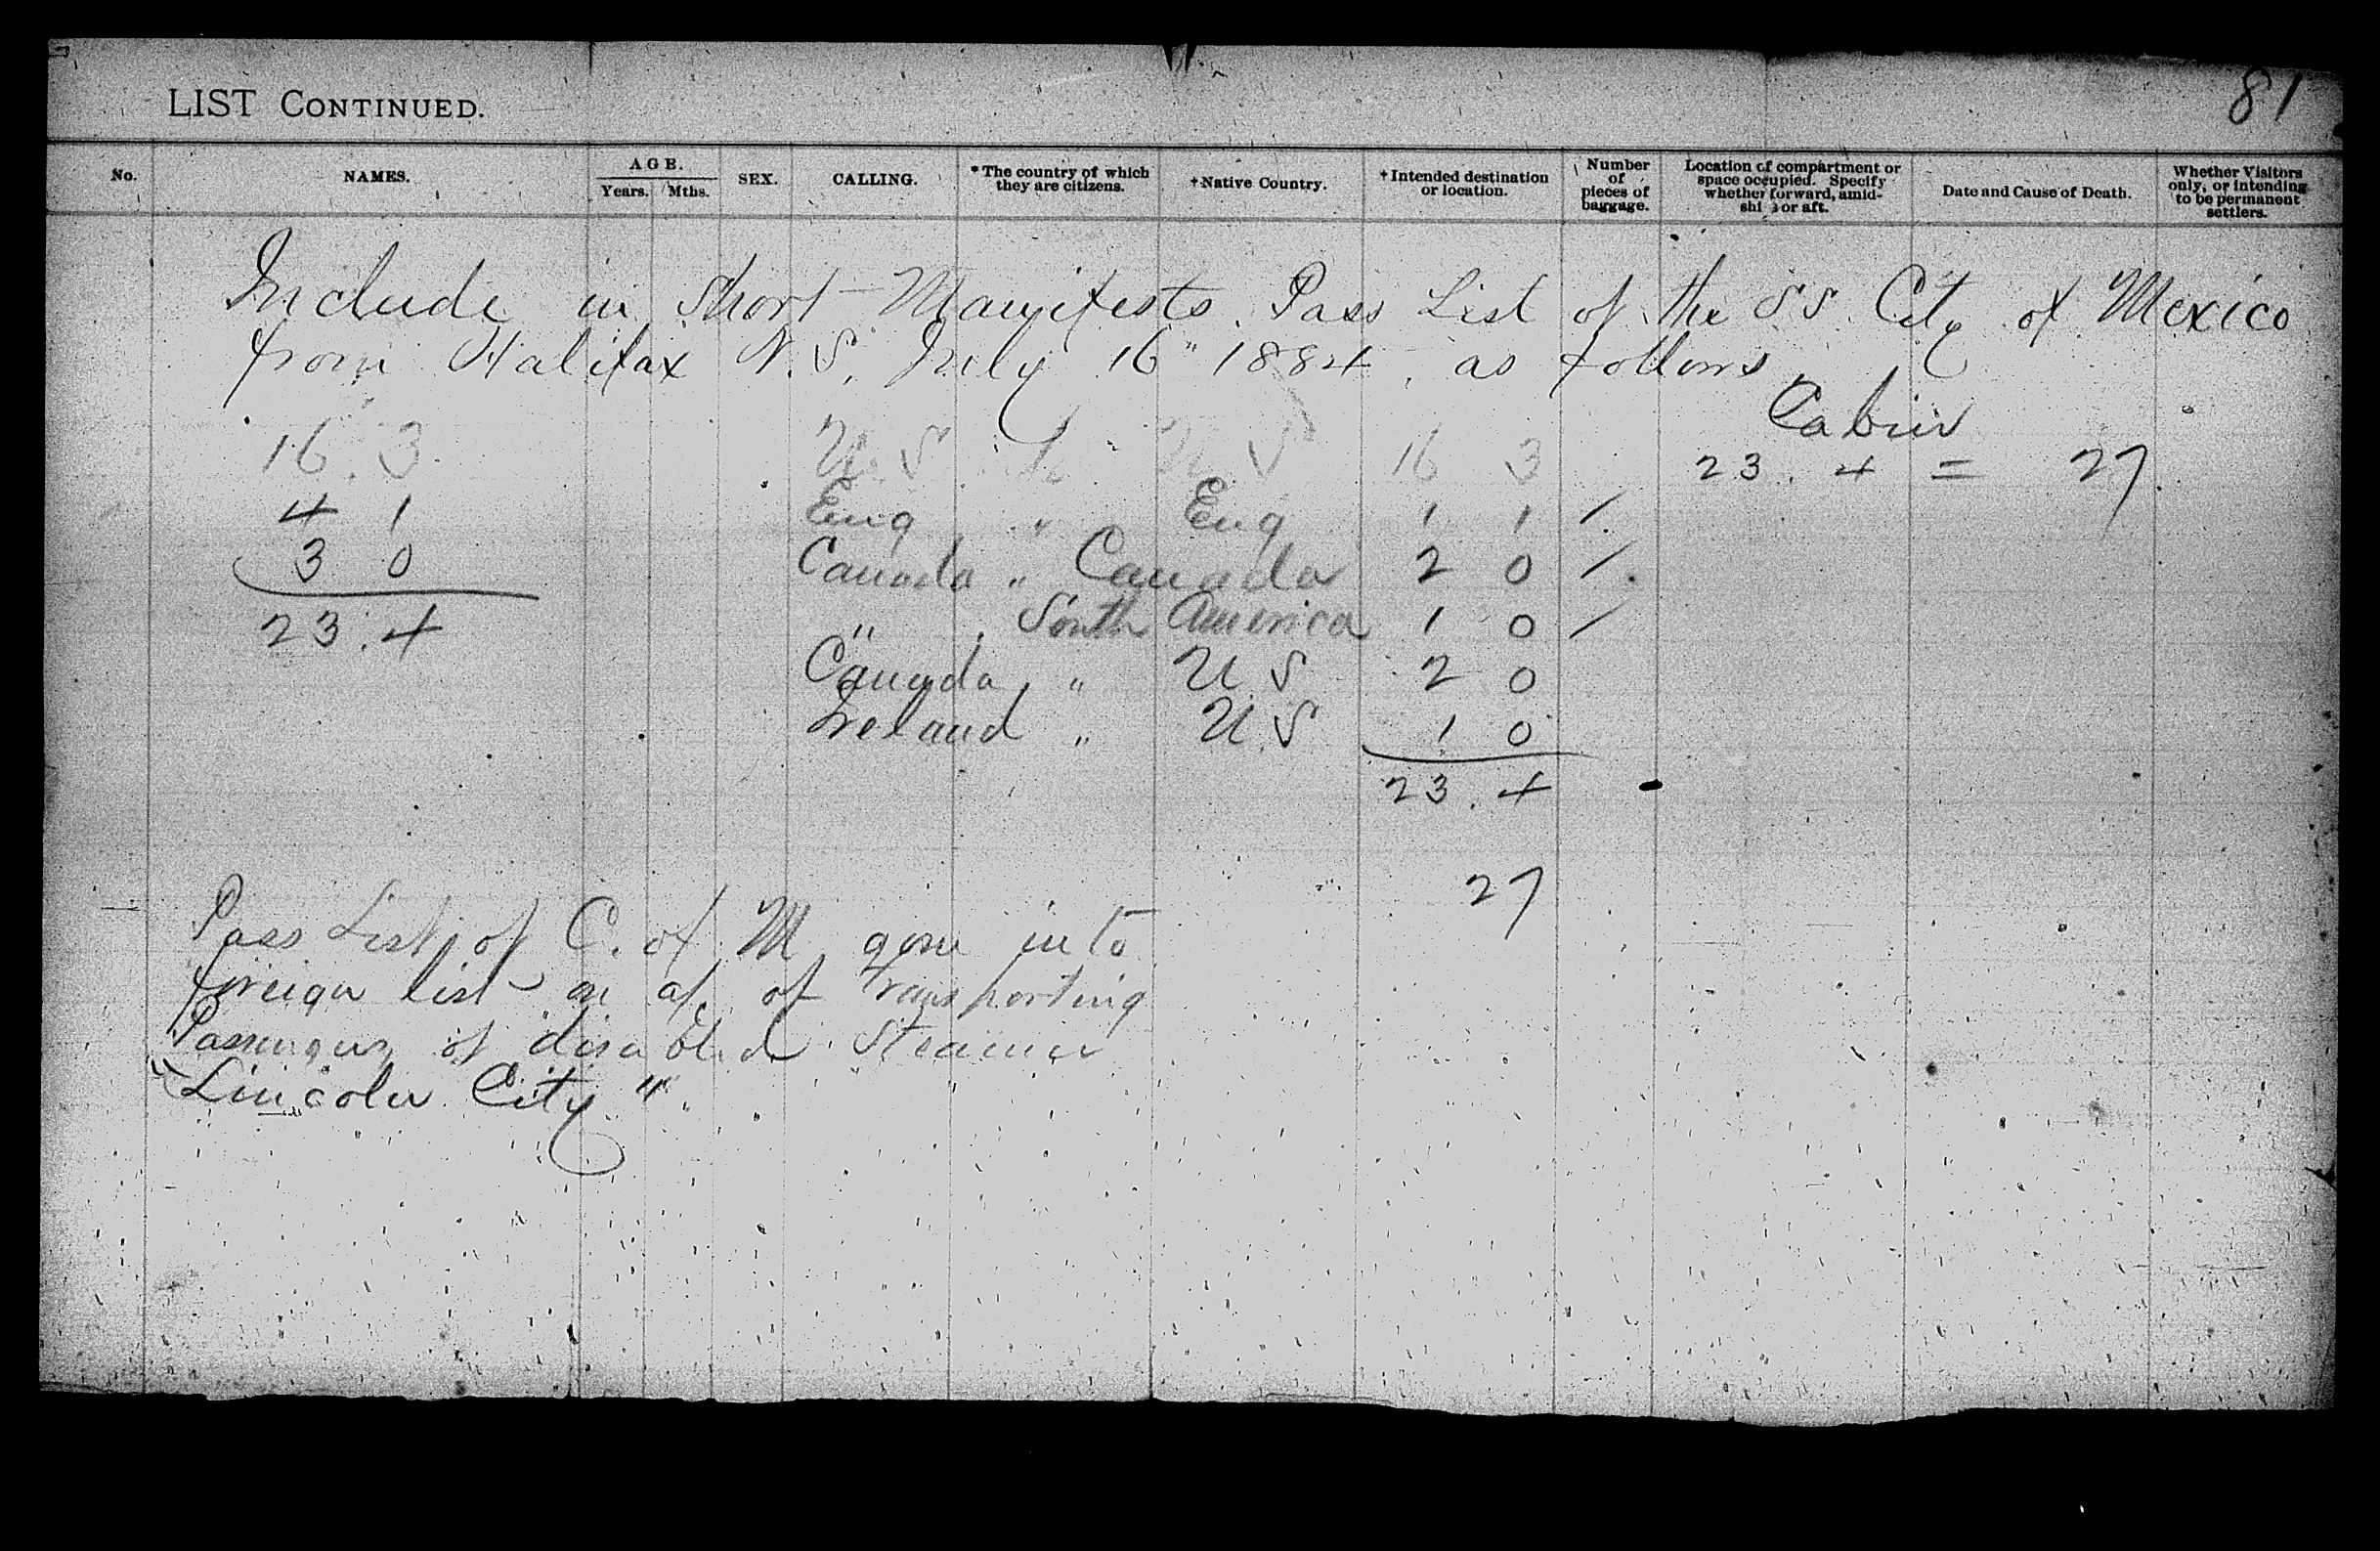 81
LIST CONTINUED.
No. NAMES. AGE. Years. Mths. SEX. CALLING. *The country of which they are citizens. †Native Country. †Intended destination or location. Number of pieces of baggage. Location of compartment or space occupied. Specify whether forward, amidshi s or aft. Date and Cause of Death. Whether Visitors only, or intending to be permanent settlers.
Include in Short Manifests. Pass List of the SS. City of Mexico
from Halifax N.S. July 16" 1884, as follows
Cabin
16. 3 U.S. to U.S 16 3 23. 4 = 27.
4 1 Eng " Eng 1 1 /
3 0 Canada " Canada 2 0 /
23. 4 " South America 1 0 /
Canada " U.S 2 0
Ireland " U.S 1 0
23. 4
27
Pass List of C. of M gone into
foreign list on a/c of transporting
Passengers of disabled Steamer
"Lincoln City"